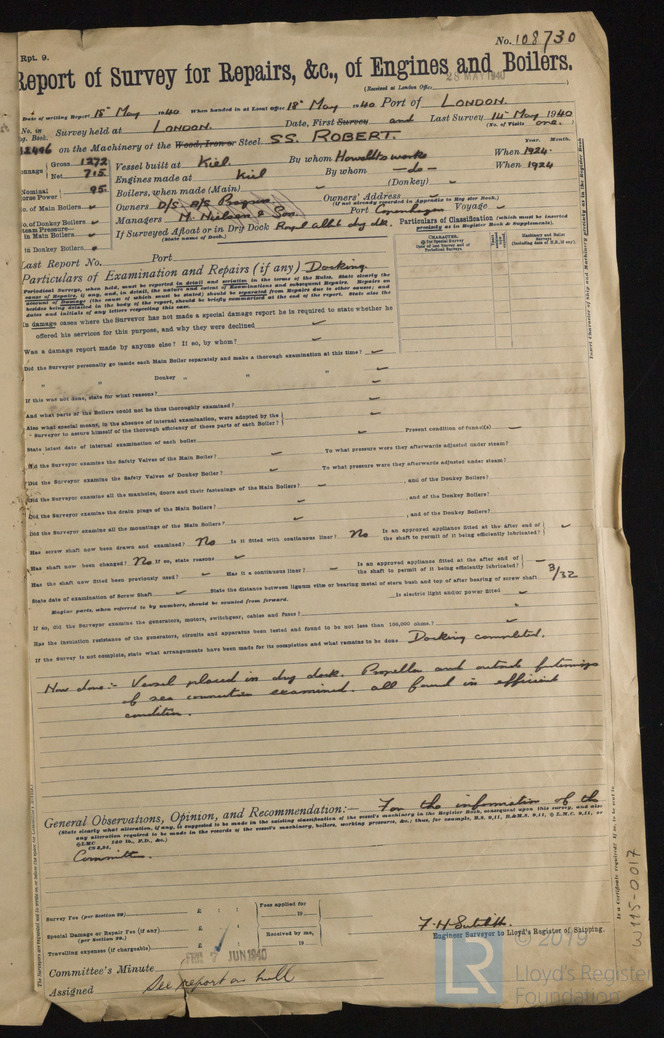 Rpt. 9.
No. 108730
Report of Survey for Repairs, &c., of Engines and Boilers.
28 MAY 1940
(Received at London Office
Date of writing Report 15th May 1940 When handed in at Local Office 18th May 1940 Port of LONDON.
No. in Survey held at LONDON. Date, First Survey and Last Survey 14th May 1940
Reg. Book. (No. of Visits one.)
12406 on the Machinery of the Wood, Iron or Steel SS. ROBERT.
Year. Month.
Tonnage Gross 1272 Vessel built at Kiel By whom Howaldtswerke When 1924
Net 715 Engines made at Kiel By whom —do— When 1924
Nominal Horse Power 95 Boilers, when made (Main) (Donkey)
No. of Main Boilers Owners D/S A/S Owners' Address
(if not already recorded in Appendix to Register Book.)
No. of Donkey Boilers Managers M. Nielsen & Son. Port Copenhagen Voyage
Steam Pressure—
in Main Boilers If Surveyed Afloat or in Dry Dock Royal Albt dry dk.
(State name of Dock.)
in Donkey Boilers
Particulars of Classification (which must be inserted
precisely as in Register Book & Supplements).
CHARACTER.
Machinery and Boiler
Surveys
Last Report No. Port
Particulars of Examination and Repairs (if any) Docking.
Periodical Surveys, when held, must be reported in detail and seriatim in the terms of the Rules. State clearly the
cause of Repairs, if any, and, in detail, the nature and extent of Examinations and subsequent Repairs. Repairs on
account of Damage (the cause of which must be stated) should be separated from Repairs due to other causes; and
besides being detailed in the body of the report, should be briefly summarised at the end of the report. State also the
dates and initials of any letters respecting this case.
In damage cases where the Surveyor has not made a special damage report he is required to state whether he
offered his services for this purpose, and why they were declined
Was a damage report made by anyone else? If so, by whom?
Did the Surveyor personally go inside each Main Boiler separately and make a thorough examination at this time?
" " Donkey " " "
If this was not done, state for what reasons?
And what parts of the Boilers could not be thus thoroughly examined?
Also what special means, in the absence of internal examination, were adopted by the
Surveyor to assure himself of the thorough efficiency of those parts of each Boiler?
State latest date of internal examination of each boiler Present condition of funnel(s)
Did the Surveyor examine the Safety Valves of the Main Boiler? To what pressure were they afterwards adjusted under steam?
Did the Surveyor examine the Safety Valves of Donkey Boiler? To what pressure were they afterwards adjusted under steam?
Did the Surveyor examine all the manholes, doors and their fastenings of the Main Boilers? , and of the Donkey Boilers?
Did the Surveyor examine the drain plugs of the Main Boilers? , and of the Donkey Boilers?
Did the Surveyor examine all the mountings of the Main Boilers? , and of the Donkey Boilers?
Has screw shaft now been drawn and examined? No Is it fitted with continuous liner? No Is an approved appliance fitted at the after end of
the shaft to permit of it being efficiently lubricated?
Has shaft now been changed? No If so, state reasons
Has the shaft now fitted been previously used? Has it a continuous liner? Is an approved appliance fitted at the after end of
the shaft to permit of it being efficiently lubricated?
State date of examination of Screw Shaft State the distance between lignum vitæ or bearing metal of stern bush and top of after bearing of screw shaft 3/32
Engine parts, when referred to by numbers, should be counted from forward. Is electric light and/or power fitted
If so, did the Surveyor examine the generators, motors, switchgear, cables and fuses?
Has the insulation resistance of the generators, circuits and apparatus been tested and found to be not less than 100,000 ohms?
If the Survey is not complete, state what arrangements have been made for its completion and what remains to be done Docking completed.
Now done:- Vessel placed in dry dock. Propeller and outside fastenings
of sea connections examined. all found in efficient
condition.
General Observations, Opinion, and Recommendation:— For the information of the
(State clearly what alteration, if any, is suggested to be made in the existing classification of the vessel's machinery in the Register Book, consequent upon this survey, and also
any alteration required to be made in the records of the vessel's machinery, boilers, working pressures, &c.; thus, for example, B.S. 9,11, B.&M.S. 9,11, L.M.C. 9,11, or
Committee.
Survey Fee (per Section 29) £ : : Fees applied for
19
Special Damage or Repair Fee (if any) £ : :
(per Section 29.) Received by me,
Travelling expenses (if chargeable) £ : : 19
Engineer Surveyor to Lloyd's Register of Shipping.
Committee's Minute FRI 7 JUN 1940
Assigned See report on hull
W115-0017
LR © 2019
Lloyd's Register
Foundation